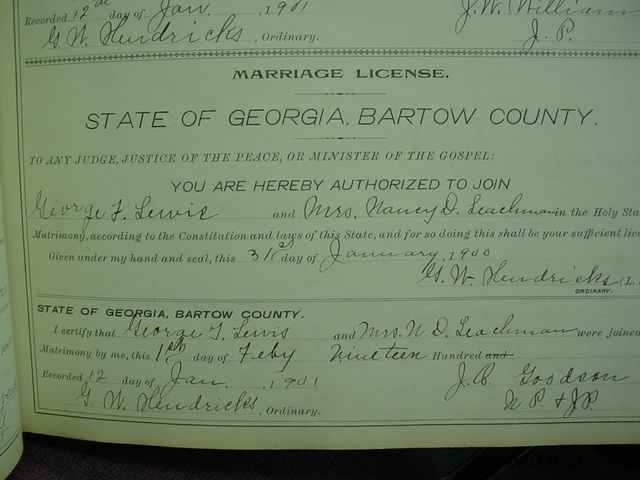 Recorded 12th day of Jan. , 1901 J. W. William
G. W. Hendricks , Ordinary. J. P.
MARRIAGE LICENSE.
STATE OF GEORGIA, BARTOW COUNTY.
TO ANY JUDGE, JUSTICE OF THE PEACE, OR MINISTER OF THE GOSPEL:
YOU ARE HEREBY AUTHORIZED TO JOIN
George F. Lewis and Mrs. Nancy D. Leachman in the Holy Sta
Matrimony, according to the Constitution and laws of this State, and for so doing this shall be your sufficient lice
Given under my hand and seal, this 31st day of January , 1900
G. W. Hendricks (L.
ORDINARY.
STATE OF GEORGIA, BARTOW COUNTY.
I certify that George F. Lewis and Mrs. N. D. Leachman were joined
Matrimony by me, this 1st day of Feby Nineteen Hundred and
Recorded 12 day of Jan. , 1901 Goodson
G. W. Hendricks , Ordinary. N. P. & J.P.